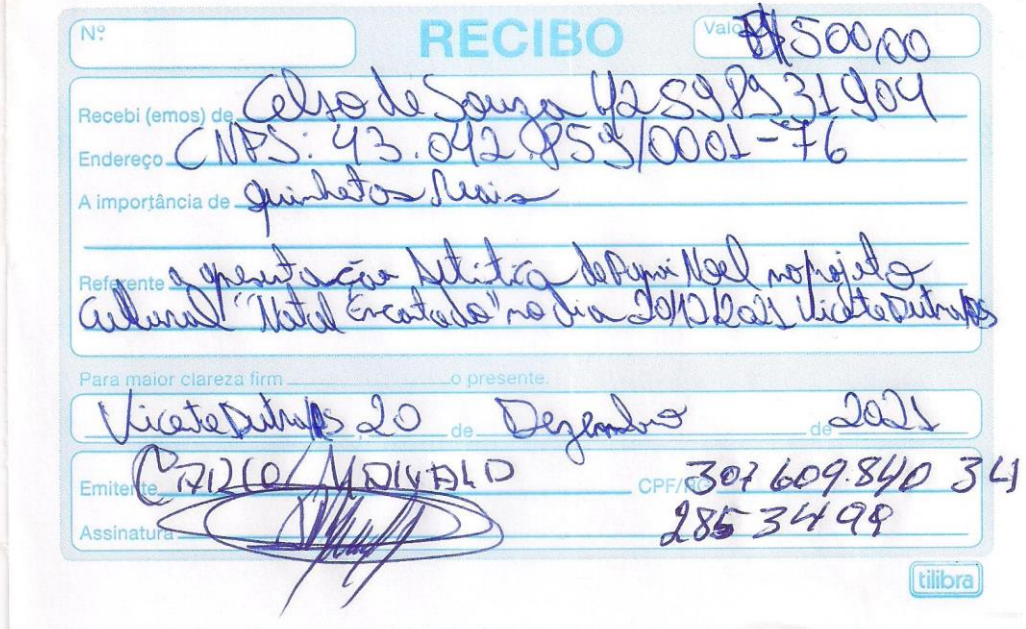 Nº RECIBO Valor R$ 500,00
Recebi (emos) de Celso de Souza 42598931904
Endereço CNPS: 43.042.859/0001-76
A importância de quinhetos Reais
Referente a apresentação Artística de Papai Noel no projeto
Cultural "Natal Encatado" no dia 20/12/2021 Vicete Dutra RS
Para maior clareza firm o presente.
Vicete Dutra RS 20 de Dezembro de 2021
Emitente CPF/RG 307 609.840 34
Assinatura 2853499
tilibra